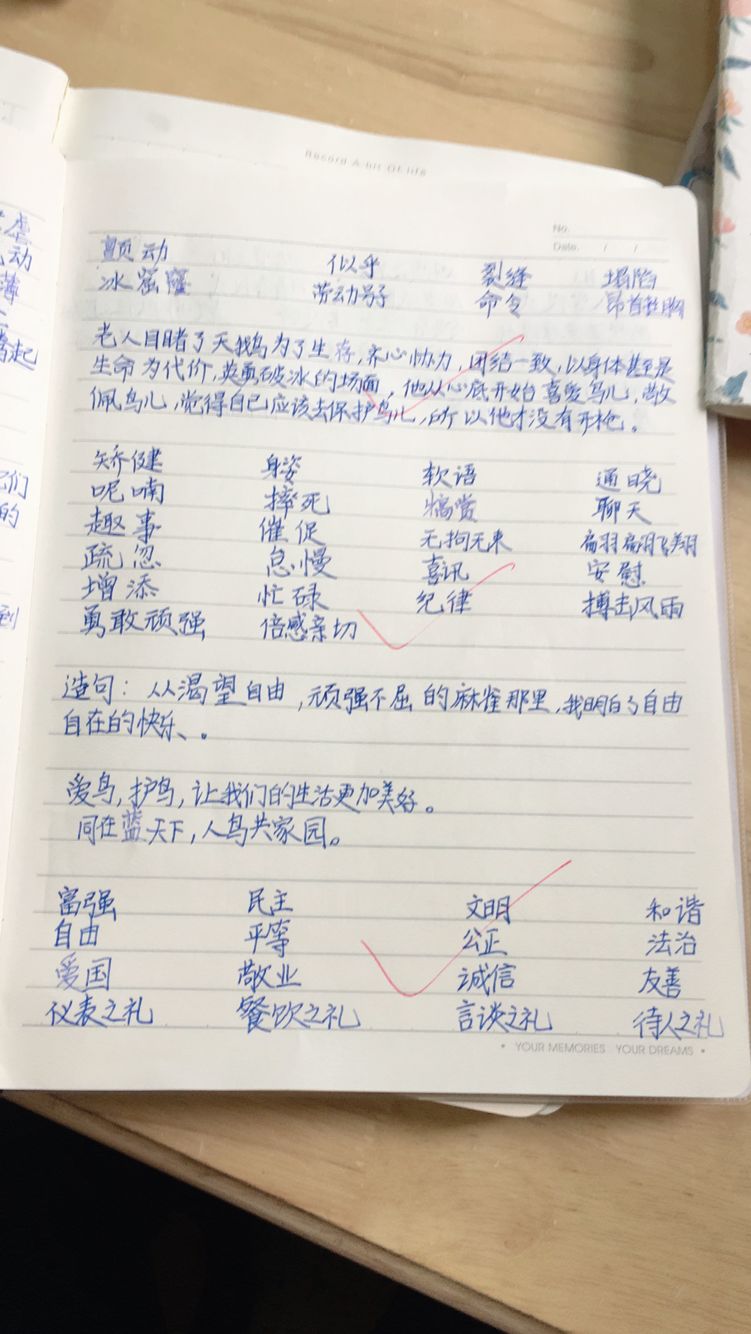 Record A bit Of life
No.
Date. / /
颤动 似乎 裂缝 塌陷
冰窟窿 劳动号子 命令 昂首挺胸
老人目睹了天鹅为了生存,齐心协力,团结一致,以身体甚至是
生命为代价,英勇破冰的场面,他从心底开始喜爱鸟儿,敬
佩鸟儿,觉得自己应该去保护鸟儿,所以他才没有开枪。
矫健 身姿 软语 通晓
呢喃 摔死 犒赏 聊天
趣事 催促 无拘无束 翩翩飞翔
疏忽 怠慢 喜讯 安慰
增添 忙碌 纪律 搏击风雨
勇敢顽强 倍感亲切
造句:从渴望自由,顽强不屈的麻雀那里,我明白了自由
自在的快乐、。
爱鸟,护鸟,让我们的生活更加美好。
同在蓝天下,人鸟共家园。
富强 民主 文明 和谐
自由 平等 公正 法治
爱国 敬业 诚信 友善
仪表之礼 餐饮之礼 言谈之礼 待人之礼
• YOUR MEMORIES . YOUR DREAMS •
虐
动
薄
起
们
的
到